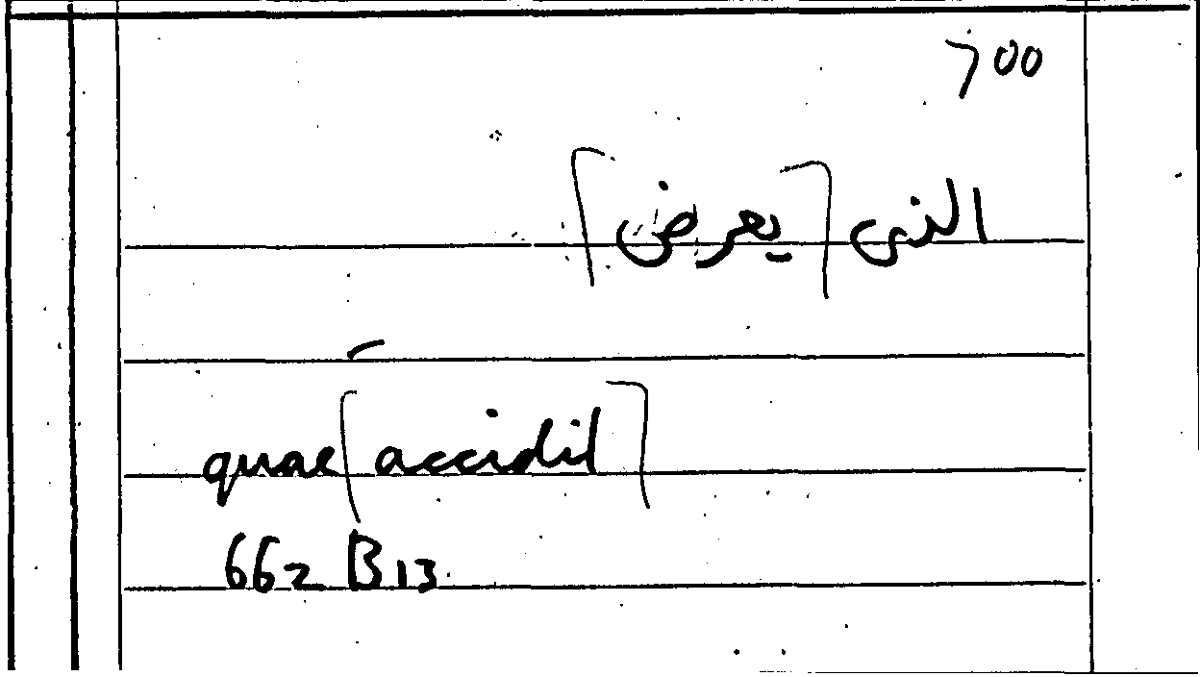 700
الذى [يعرض]
quae [accidit]
662 B 13